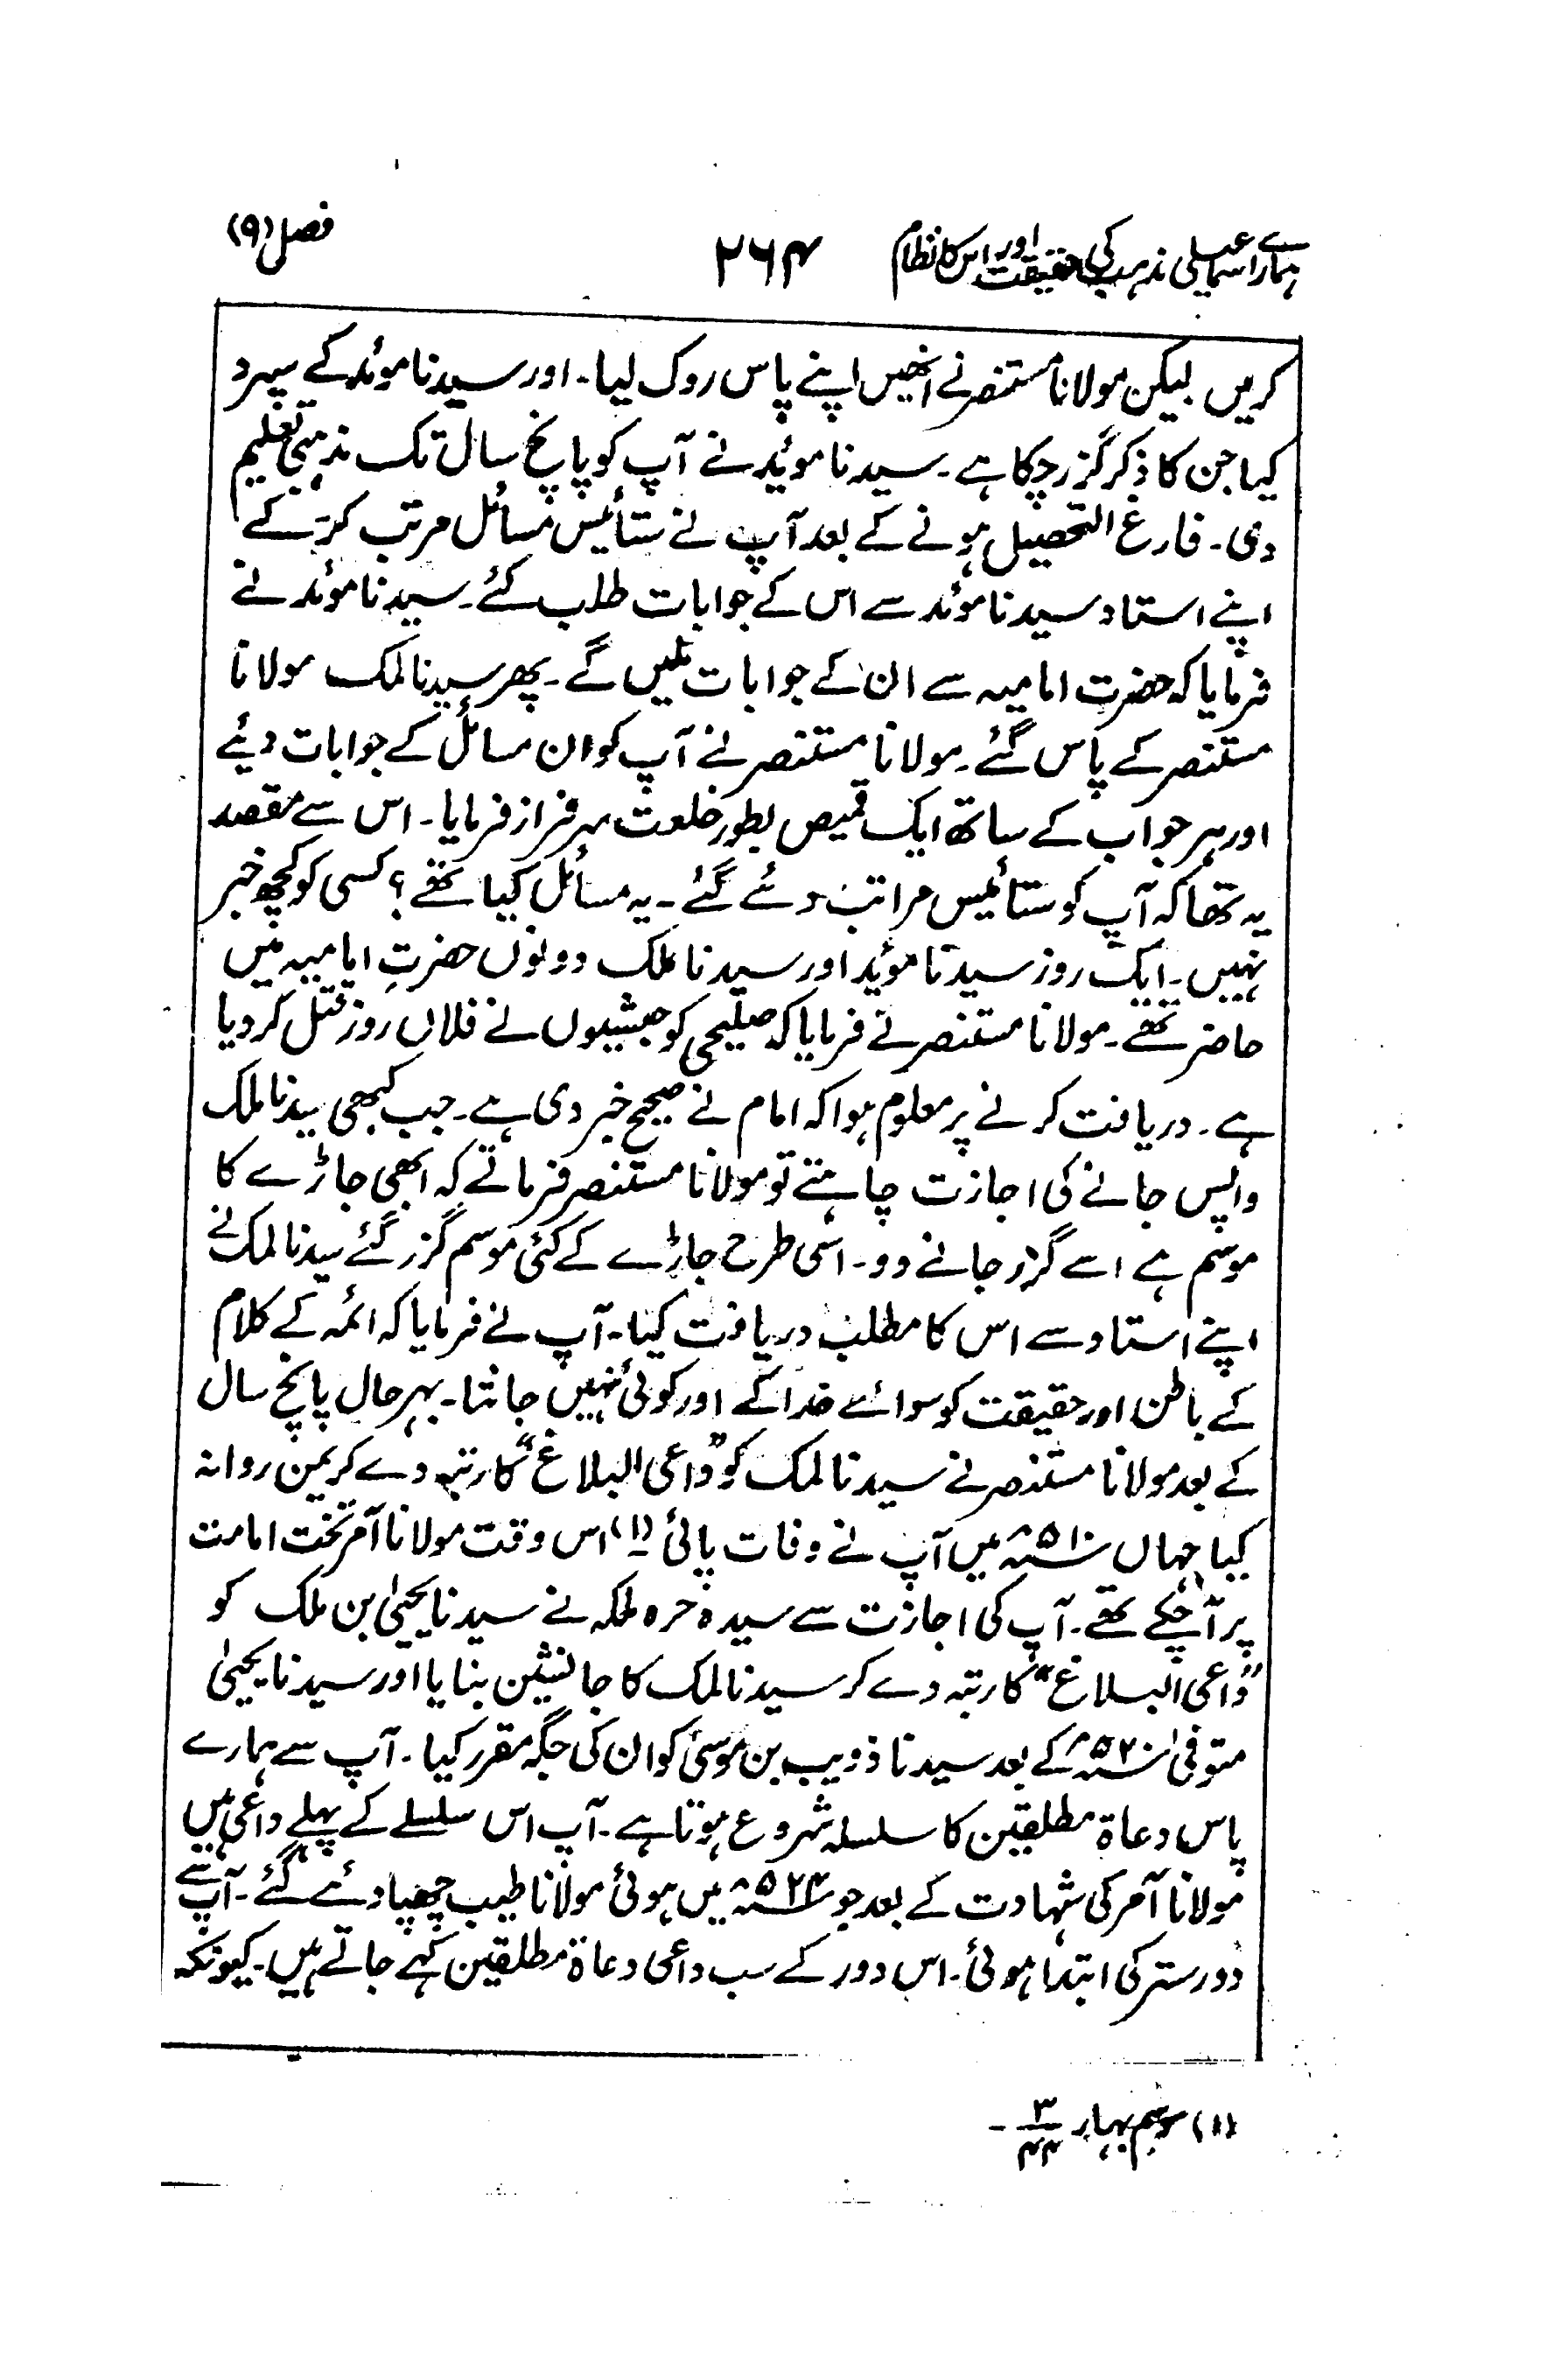 ہمارے اسماعیلی مذہب کی حقیقت اور اس کا نظام ۲۶۴ فصل (۹)
کریں لیکن مولانا مستنصر نے انھیں اپنے پاس روک لیا۔ اور سیدنا موئد کے سپرد
کیا جن کا ذکر گزر چکا ہے۔ سیدنا موئید نے آپ کو پانچ سال تک مذہبی تعلیم
دی۔ فارغ التحصیل ہونے کے بعد آپ نے ستائیس مسائل مرتب کرکے
اپنے استاد سیدنا موئد سے اس کے جوابات طلب کئے۔ سیدنا موئد نے
فرمایا کہ حضرت امامیہ سے ان کے جوابات ملیں گے۔ پھر سیدنا لمک مولانا
مستنصر کے پاس گئے۔ مولانا مستنصر نے آپ کو ان مسائل کے جوابات دیئے
اور ہر جواب کے ساتھ ایک قمیص بطور خلعت سرفراز فرمایا۔ اس سے مقصد
یہ تھا کہ آپ کو ستائیس مراتب دئے گئے۔ یہ مسائل کیا تھے؟ کسی کو کچھ خبر
نہیں۔ ایک روز سیدنا موئید اور سیدنا ملک دونوں حضرتِ امامیہ میں
حاضر تھے۔ مولانا مستنصر نے فرمایا کہ صلیحی کو حبشیوں نے فلاں روز قتل کر دیا
ہے۔ دریافت کرنے پر معلوم ہوا کہ امام نے صحیح خبر دی ہے۔ جب کبھی سیدنا ملک
واپس جانے کی اجازت چاہتے تو مولانا مستنصر فرماتے کہ ابھی جاڑے کا
موسم ہے اسے گزر جانے دو۔ اسی طرح جاڑے کے کئی موسم گزر گئے سیدنا لمک نے
اپنے استاد سے اس کا مطلب دریافت کیا۔ آپ نے فرمایا کہ ائمہ کے کلام
کے باطن اور حقیقت کو سوائے خدا کے اور کوئی نہیں جانتا۔ بہرحال پانچ سال
کے بعد مولانا مستنصر نے سیدنا لمک کو ”داعی البلاغ“ کا رتبہ دے کر یمن روانہ
کیا جہاں ۵۱۰ھ میں آپ نے وفات پائی (۱) اس وقت مولانا آمر تخت امامت
پر آ چکے تھے۔ آپ کی اجازت سے سیدہ حرہ ملکہ نے سیدنا یحییٰ بن ملک کو
”داعی البلاغ“ کا رتبہ دے کر سیدنا لمک کا جانشین بنایا اور سیدنا یحییٰ
متوفیٰ ۵۲۰ھ کے بعد سیدنا ذویب بن موسیٰ کو ان کی جگہ مقرر کیا۔ آپ سے ہمارے
پاس دعاۃ مطلقین کا سلسلہ شروع ہوتا ہے۔ آپ اس سلسلے کے پہلے داعی ہیں
مولانا آمر کی شہادت کے بعد جو ۵۲۴ھ میں ہوئی مولانا طیب چھپا دئے گئے۔ آپ سے
دور ستر کی ابتدا ہوئی۔ اس دور کے سب داعی دعاۃ مطلقین کہے جاتے ہیں۔ کیونکہ
(۱) موسم بہار ۳/۴۴ ۔